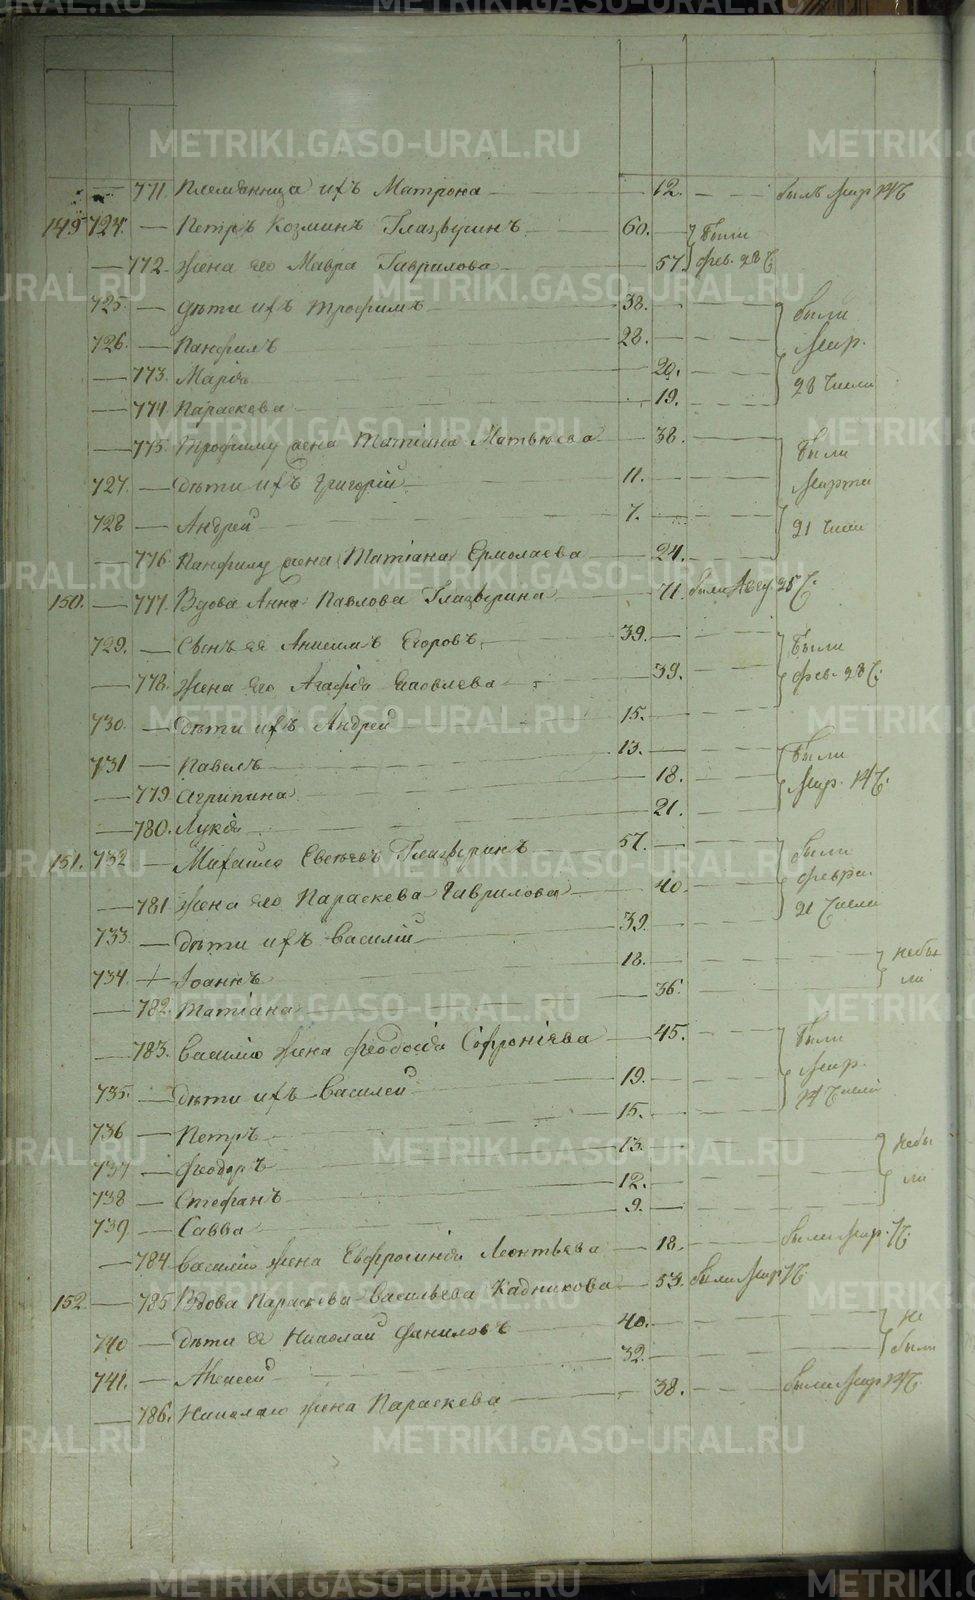 — 771. Племянница ихъ Матрона — 12. — — были Мар 14 Ч
149 724. — Петръ Козминъ Глазыринъ 60. — Были
— 772. Жена его Мавра Гаврилова 57. фев. 28 Ч
725. — Дѣти ихъ Трофимъ 38. — — были
726. — Панфилъ 28. — — Мар.
— 773. Марія 20. — — 28 Числа
— 774. Параскева 19. — —
— 775. Трофиму жена Татіана Матвѣева — 38. — — Были
727. — Дѣти ихъ Григорій 11. — — Марта
728 — Андрей 7. — — 21 Числа
— 776. Панфилу жена Татіана Ермолаева 24. — —
150. — 777. Вдова Анна Павлова Глазырина 71. были Авгу. 25 Ч.
729. — Сынъ ея Анисимъ Егоровъ 39. — — Были
— 778. Жена его Агафія Яковлева 39. — — фев. 28 Ч.
730. — Дѣти ихъ Андрей 15. — —
731 — Павелъ 13. — — Были
— 779 Агрипина 18. — — Мар. 14 Ч.
— 780. Лукія 21. — —
151. 732 — Михайло Глазыринъ 57. — — были
— 781 Жена его Параскева Гаврилова 40. — — февра.
733. — Дѣти ихъ Василій 39. — — 21 Числа
734. + Іоаннъ 18. — — небы
— 782. Татіана 36. — — ли
— 783. Василію Жена Феодосія Софроніева — 45. — — Были
735. — Дѣти ихъ Василей 19. — — Мар.
736 — Петръ 15. — — 14 Числа
737 — Феодоръ 13. — — небы
738 — Стефанъ 12. — — ли
739 — Савва 9. — —
— 784 Василію Жена Евфросинія Леонтьева — 18. — — были Мар. Ч.
152 — 785 Вдова Параскева Васильева Кадникова 53. были Мар Ч
740 — Дѣти ея Николай Даниловъ 40. — — не
741. — Алексей 32. — — были
— 786. Николаю жена Параскева 38. — — были Мар 14 Ч.
METRIKI.GASO-URAL.RU